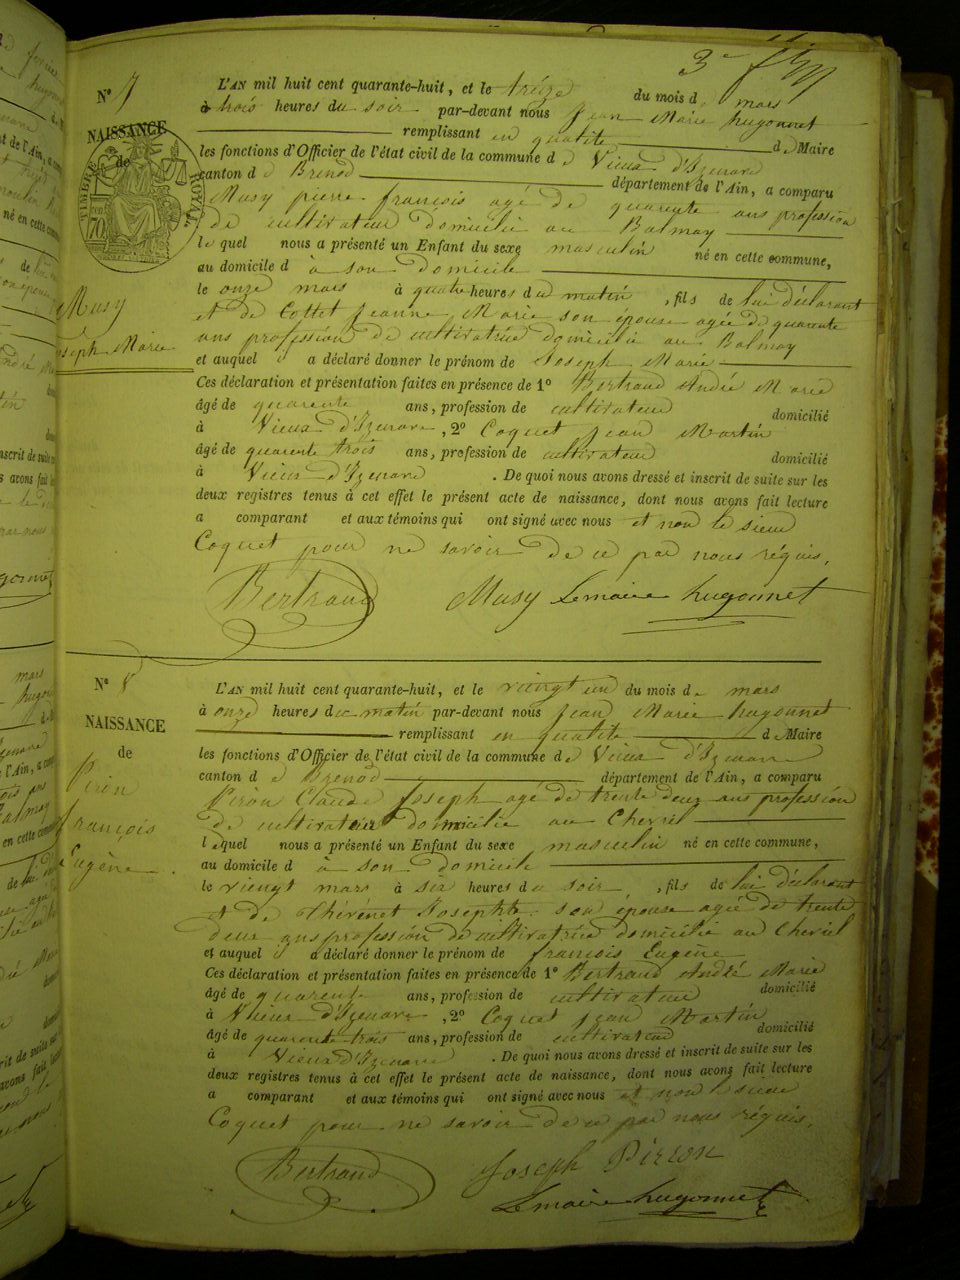 3e
N° 7
NAISSANCE
de
TIMBRE ROYAL
70
Musy
Joseph Marie
L'AN mil huit cent quarante-huit, et le treize du mois de mars
à trois heures du soir par-devant nous Jean Marie hugonnet
remplissant en qualité de Maire
les fonctions d'Officier de l'état civil de la commune d e Vieux d'Izenave
canton d e Brenod département de l'Ain, a comparu
Musy pierre françois agé de quarente ans profession
de cultivateur domicilié au Balmay
le quel nous a présenté un Enfant du sexe masculin né en cette commune,
au domicile d à son domicile
le onze mars à quatre heures du matin , fils de lui déclarant
et de Cottet Jeanne Marie son épouse agée de quarente
ans profession de cultivatrice domicilié au Balmay
et auquel il a déclaré donner le prénom de Joseph Marie
Ces déclaration et présentation faites en présence de 1° Bertraud André Marie
âgé de quarente ans, profession de cultivateur domicilié
à Vieux d'Izenave , 2° Coquet Jean Martin
âgé de quarente trois ans, profession de cultivateur domicilié
à Vieux d'Izenave . De quoi nous avons dressé et inscrit de suite sur les
deux registres tenus à cet effet le présent acte de naissance, dont nous avons fait lecture
a comparant et aux témoins qui ont signé avec nous et non le sieur
Coquet pour ne savoir de ce par nous réquis.
Bertraud Musy Lemaire hugonnet
N° 8
NAISSANCE
de
Piron
françois
Eugène
L'AN mil huit cent quarante-huit, et le viengt un du mois de mars
à onze heures du matin par-devant nous Jean Marie hugonnet
remplissant en qualité de Maire
les fonctions d'Officier de l'état civil de la commune de Vieux d'Izenave
canton d e Brenod département de l'Ain, a comparu
Piron Claude Joseph agé de trente deux ans profession
de cultivateur domicilié au Chevril
lequel nous a présenté un Enfant du sexe masculin né en cette commune,
au domicile d à son domicile
le viengt mars à six heures du soir , fils de lui déclarant
et de Thérénet Josephte son épouse agée de trente
deux ans profession de cultivatrice domicilié au Chevril
et auquel il a déclaré donner le prénom de françois Eugène
Ces déclaration et présentation faites en présence de 1° Bertraud André Marie
âgé de quarente ans, profession de cultivateur domicilié
à Vieux d'Izenave , 2° Coquet Jean Martin
âgé de quarente trois ans, profession de cultivateur domicilié
à Vieux d'Izenave . De quoi nous avons dressé et inscrit de suite sur les
deux registres tenus à cet effet le présent acte de naissance, dont nous avons fait lecture
a comparant et aux témoins qui ont signé avec nous et non le sieur
Coquet pour ne savoir de ce par nous réquis.
Bertraud Joseph Piron
Lemaire hugonnet